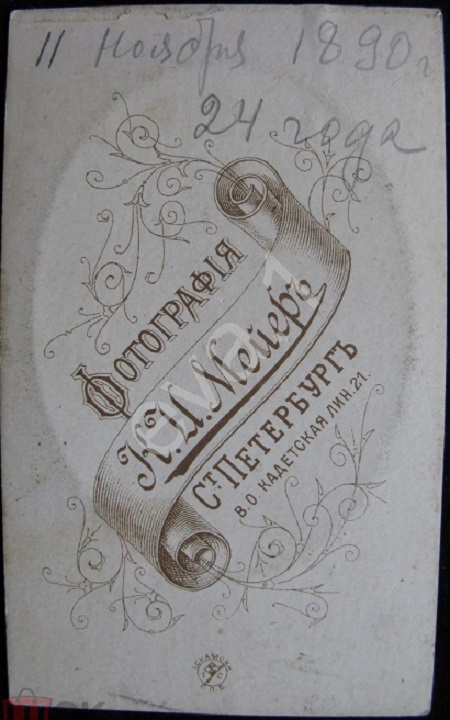 11 Ноября 1890 г
24 года
Фотографія
К.И. Мейеръ
Ст. Петербургъ
В.О. Кадетская лин. 21.
eva_1